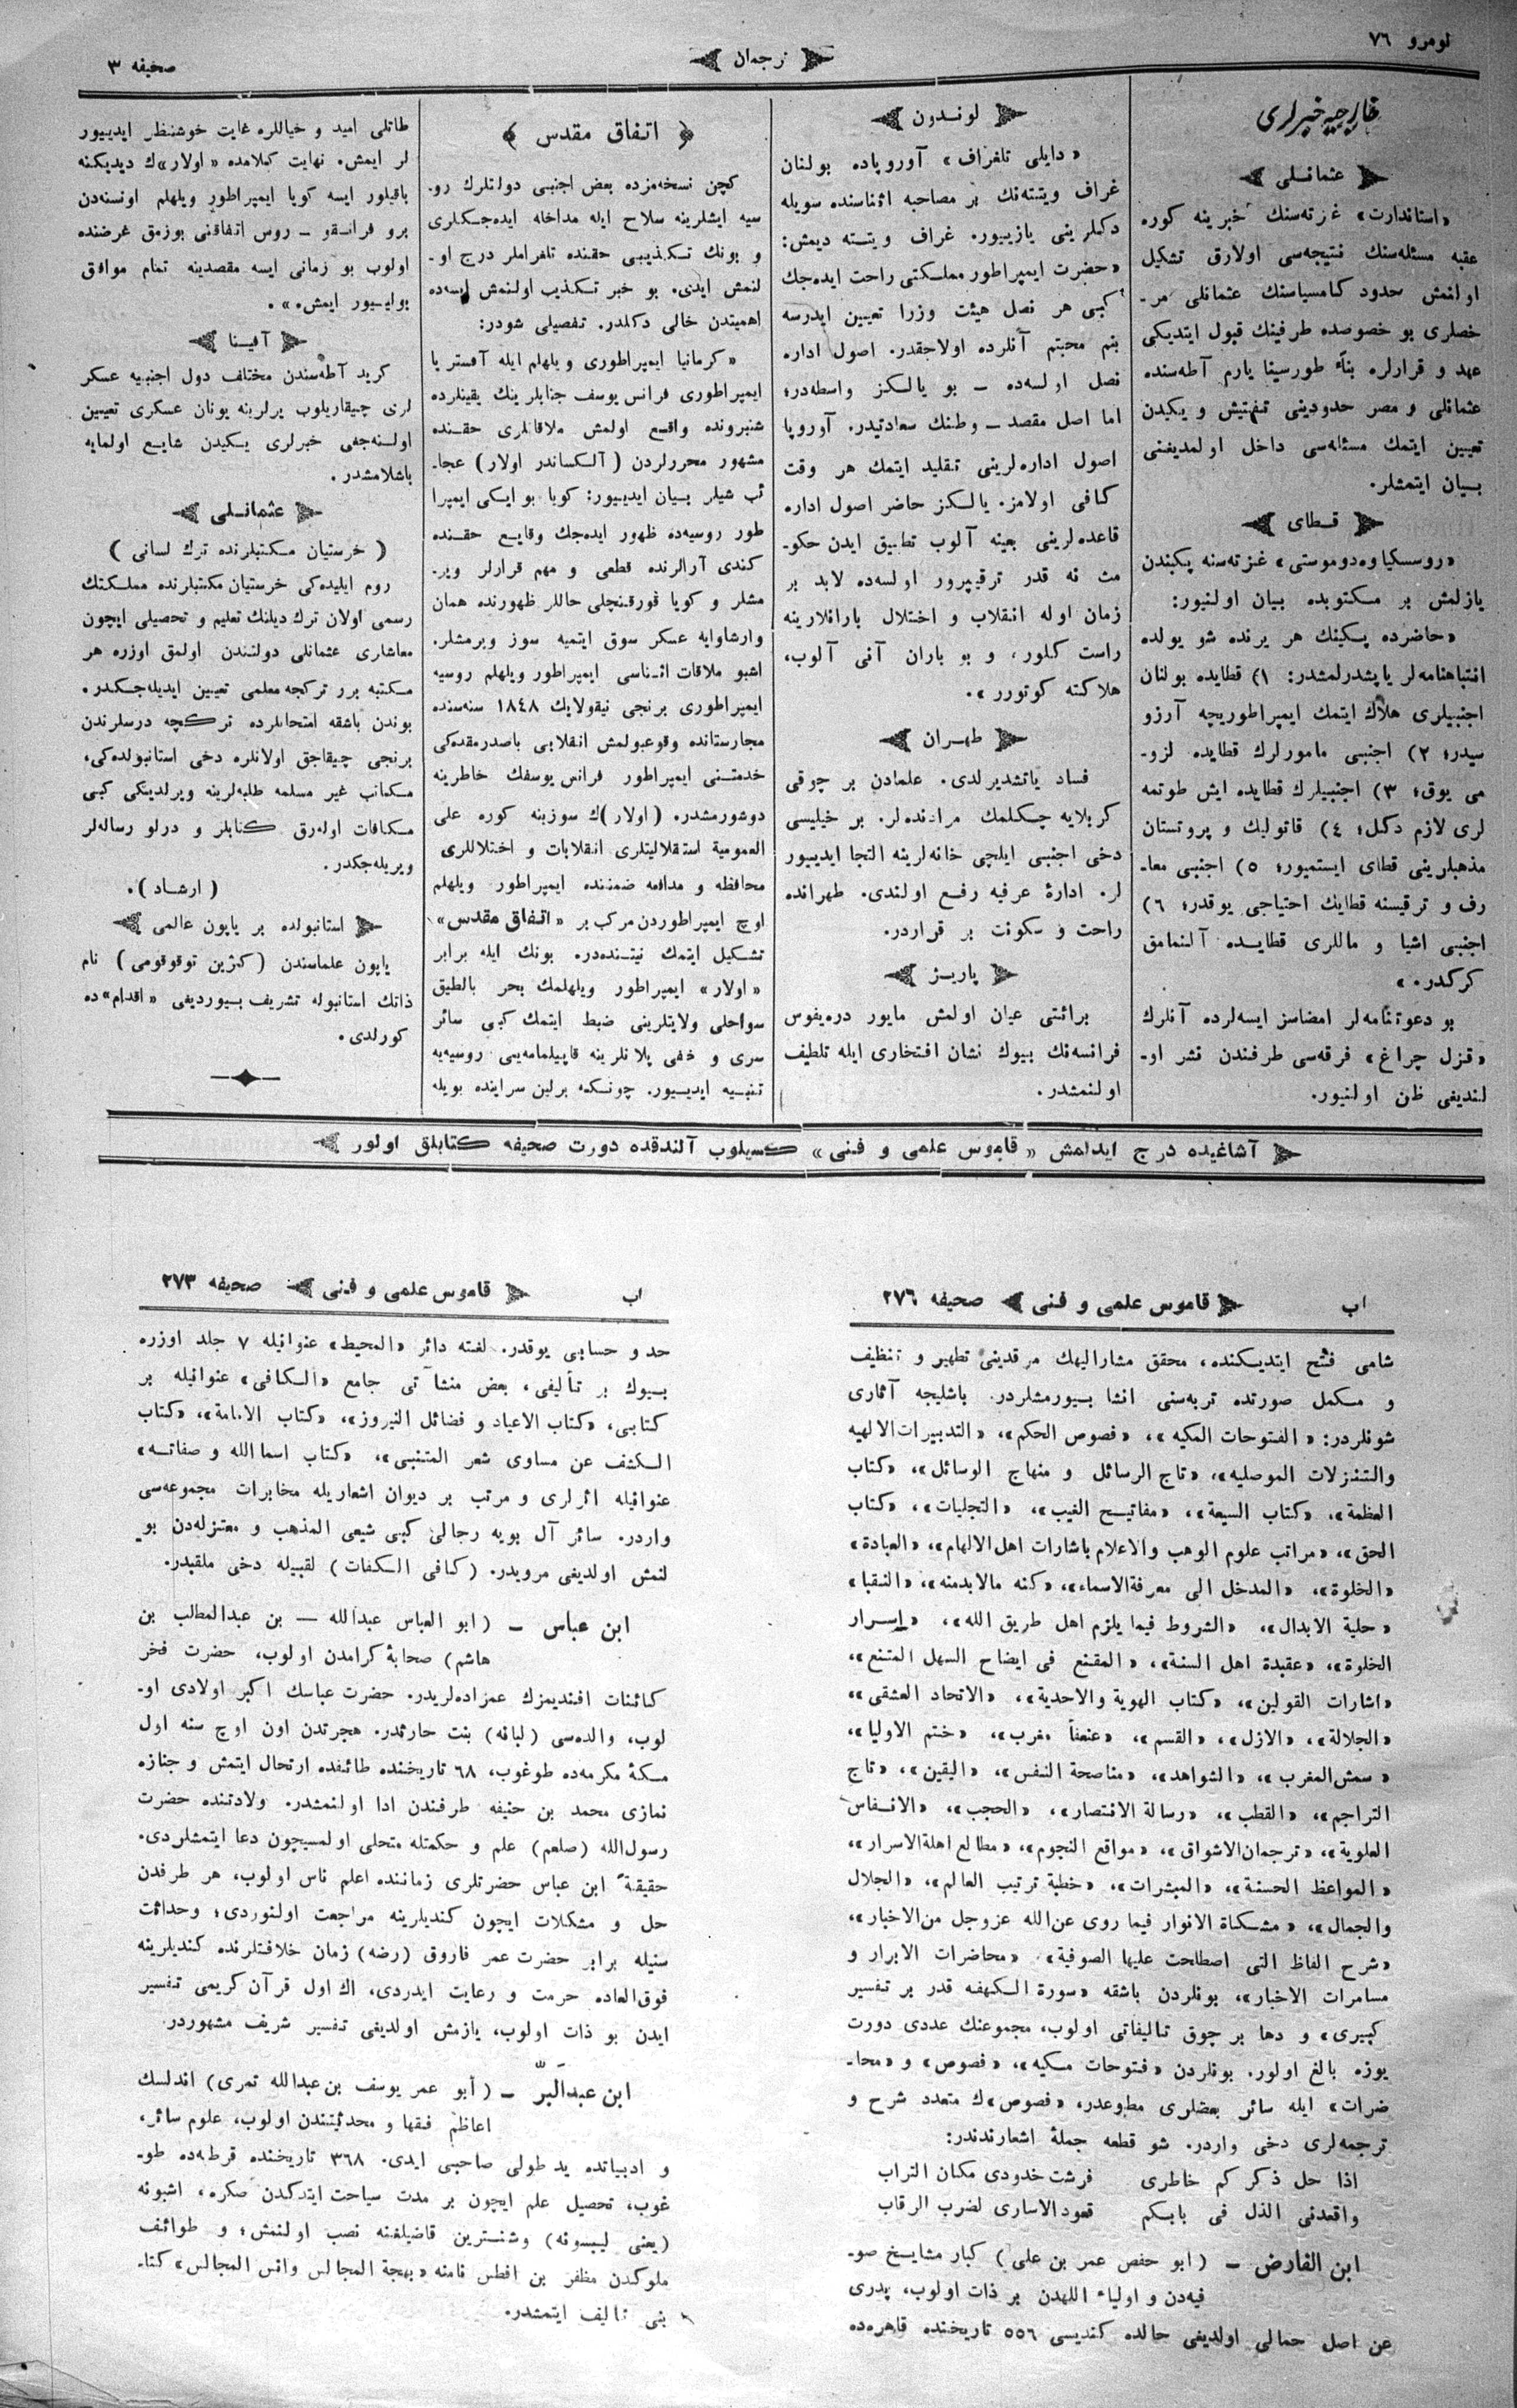 نومرو ٧٦
ترجمان
صحیفه ٣
خارجیه خبرلری
عثمانلی
«استاندارت» غزته‌سنك خبرینه کوره
عقبه مسئله‌سنك نتیجه‌سی اولارق تشکیل
اولنمش حدود کامسیاسنك عثمانلی مر-
خصلری بو خصوصده طرفینك قبول ایتدیکی
عهد و قرارلره بناً طورسینا یارم آطه‌سنده
عثمانلی و مصر حدودینی تفتیش و یکیدن
تعیین ایتمك مسئله‌سی داخل اولمدیغنی
بیان ایتمشلر.
قطای
«روسسکیا وه‌دوموستی» غزته‌سنه پکیندن
یازلمش بر مکتوبده بیان اولنیور:
«حاضرده پکینك هر یرنده شو یولده
انتباهنامه‌لر یاپشدرلمشدر: ١) قطایده بولنان
اجنبیلری هلاك ایتمك ایمپراطوریچه آرزو
سیدر؛ ٢) اجنبی مامورلرك قطایده لزو-
می یوق؛ ٣) اجنبیلرك قطایده ایش طوتمه
لری لازم دکل؛ ٤) قاتولیك و پروتستان
مذهبلرینی قطای ایستمیور؛ ٥) اجنبی معا-
رف و ترقیسنه قطایك احتیاجی یوقدر؛ ٦)
اجنبی اشیا و ماللری قطایده آلنمامق
کرکدر.»
بو دعوتنامه‌لر امضاسز ایسه‌لرده آنلرك
«قزل چراغ» فرقه‌سی طرفندن نشر او-
لندیغی ظن اولنیور.
لوندون
«دایلی تلغراف» آوروپاده بولنان
غراف ویتته‌نك بر مصاحبه اثناسنده سویله
دکلرینی یازییور. غراف ویتته دیمش:
«حضرت ایمپراطور مملکتی راحت ایده‌جك
کبی هر نصل هیئت وزرا تعیین ایدرسه
بنم محبتم آنلرده اولاجقدر. اصول اداره
نصل اولسه‌ده — بو یالکز واسطه‌در؛
اما اصل مقصد — وطنك سعادتیدر. آوروپا
اصول اداره‌لرینی تقلید ایتمك هر وقت
کافی اولامز. یالکز حاضر اصول اداره
قاعده‌لرینی بعینه آلوب تطبیق ایدن حکو-
مت نه قدر ترقیپرور اولسه‌ده لابد بر
زمان اوله انقلاب و اختلال بارانلارینه
راست کلور، و بو باران آنی آلوب،
هلاکته کوتورر».
طهران
فساد یاتشدیرلدی. علمادن بر چوقی
کربلایه چکلمك مرادنده‌لر. بر خیلیسی
دخی اجنبی ایلچی خانه‌لرینه التجا ایدییور
لر. ادارۀ عرفیه رفع اولندی. طهرانده
راحت و سکونت بر قراردر.
پاریژ
برائتی عیان اولمش مایور دره‌یفوس
فرانسه‌نك بیوك نشان افتخاری ایله تلطیف
اولنمشدر.
اتفاق مقدس
کچن نسخه‌مزده بعض اجنبی دولتلرك رو-
سیه ایشلرینه سلاح ایله مداخله ایده‌جکلری
و بونك تکذیبی حقنده تلغراملر درج او-
لنمش ایدی. بو خبر تکذیب اولنمش ایسه‌ده
اهمیتدن خالی دکلدر. تفصیلی شودر:
«کرمانیا ایمپراطوری ویلهلم ایله آفستریا
ایمپراطوری فرانس یوسف جنابلرینك یقینلرده
شنبرونده واقع اولمش ملاقاتلری حقنده
مشهور محررلردن (آلکساندر اولار) عجا-
ئب شیلر بیان ایدییور: کویا بو ایکی ایمپرا
طور روسیه‌ده ظهور ایده‌جك وقایع حقنده
کندی آرالرنده قطعی و مهم قرارلر ویر-
مشلر و کویا قورقنچلی حاللر ظهورنده همان
وارشاوایه عسکر سوق ایتمیه سوز ویرمشلر.
اشبو ملاقات اثناسی ایمپراطور ویلهلم روسیه
ایمپراطوری برنجی نیقولایك ١٨٤٨ سنه‌سنده
مجارستانده وقوعبولمش انقلابی باصدرمقده‌کی
خدمتنی ایمپراطور فرانس یوسفك خاطرینه
دوشورمشدر. (اولار)ك سوزینه کوره علی
العمومیه استقلالیتلری انقلابات و اختلاللری
محافظه و مدافعه ضمننده ایمپراطور ویلهلم
اوچ ایمپراطوردن مرکب بر «اتفاق مقدس»
تشکیل ایتمك نیتنده‌در. بونك ایله برابر
«اولار» ایمپراطور ویلهلمك بحر بالطیق
سواحلی ولایتلرینی ضبط ایتمك کبی سائر
سری و خفی پلانلرینه قاپیلمامه‌یی روسیه‌یه
تنبیه ایدییور. چونکه برلین سراینده بویله
طاتلی امید و خیاللره غایت خوشنظر ایدییور
لر ایمش. نهایت کلامده «اولار»ك دیدیکنه
باقیلور ایسه کویا ایمپراطور ویلهلم اونسنه‌دن
برو فرانقو — روس اتفاقنی بوزمق غرضنده
اولوب بو زمانی ایسه مقصدینه تمام موافق
بولییور ایمش.».
آفینا
کرید آطه‌سندن مختلف دول اجنبیه عسکر
لری چیقاریلوب یرلرینه یونان عسکری تعیین
اولنه‌جغی خبرلری یکیدن شایع اولمایه
باشلامشدر.
عثمانلی
(خرستیان مکتبلرنده ترك لسانی)
روم ایلیده‌کی خرستیان مکتبلرنده مملکتك
رسمی اولان ترك دیلنك تعلیم و تحصیلی ایچون
معاشاری عثمانلی دولتندن اولمق اوزره هر
مکتبه برر ترکجه معلمی تعیین ایدیله‌جکدر.
بوندن باشقه امتحانلرده ترکچه درسلرندن
برنجی چیقاجق اولانلره دخی استانبولده‌کی،
مکاتب غیر مسلمه طلبه‌لرینه ویرلدیکی کبی
مکافات اوله‌رق کتابلر و درلو رساله‌لر
ویریله‌جکدر.
(ارشاد).
استانبولده بر یاپون عالمی
یاپون علماسندن (کنژین توقوقومی) نام
ذاتك استانبوله تشریف بیوردیغی «اقدام»ده
کورلدی.
آشاغیده درج ایدلمش «قاموس علمی و فنی» کسیلوب آلندقده دورت صحیفه کتابلق اولور
اب
قاموس علمی و فنی
صحیفه ٢٧٦
شامی فتح ایتدیکنده، محقق مشارالیهك مرقدینی تطهیر و تنظیف
و مکمل صورتده تربه‌سنی انشا بیورمشلردر. باشلیجه آثاری
شونلردر: «الفتوحات المکیه»، «فصوص الحکم»، «التدبیرات الالهیه
والتنزلات الموصلیه»، «تاج الرسائل و منهاج الوسائل»، «کتاب
العظمة»، «کتاب السبعة»، «مفاتیح الغیب»، «التجلیات»، «کتاب
الحق»، «مراتب علوم الوهب والاعلام باشارات اهل الالهام»، «العبادة»
«الخلوة»، «المدخل الی معرفة‌الاسماء»، «کنه مالابدمنه»، «النقبا»
«حلیة الابدال»، «الشروط فیما یلزم اهل طریق الله»، «اسرار
الخلوة»، «عقیدة اهل السنة»، «المقنع فی ایضاح السهل الممتنع»،
«اشارات القولین»، «کتاب الهویة والاحدیة»، «الاتحاد العشقی»
«الجلالة»، «الازل»، «القسم»، «عنقا مغرب»، «ختم الاولیا»،
«شمس المغرب»، «الشواهد»، «مناصحة النفس»، «الیقین»، «تاج
التراجم»، «القطب»، «رسالة الانتصار»، «الحجب»، «الانفاس
العلویة»، «ترجمان الاشواق»، «مواقع النجوم»، «مطالع اهلة الاسرار»،
«المواعظ الحسنة»، «المبشرات»، «خطبة ترتیب العالم»، «الجلال
والجمال»، «مشکاة الانوار فیما روی عن‌الله عزوجل من‌الاخبار»،
«شرح الفاظ التی اصطلحت علیها الصوفیة»، «محاضرات الابرار و
مسامرات الاخبار»، بونلردن باشقه «سورة الکهفه قدر بر تفسیر
کبیری» و دها بر چوق تالیفاتی اولوب، مجموعنك عددی دورت
یوزه بالغ اولور. بونلردن «فتوحات مکیه»، «فصوص» و «محا-
ضرات» ایله سائر بعضلری مطبوعدر، «فصوص»ك متعدد شرح و
ترجمه‌لری دخی واردر. شو قطعه جملۀ اشعارندندر:
اذا حل ذکر کم خاطری فرشت خدودی مکان التراب
واقعدنی الذل فی بابکم قعود الاساری لضرب الرقاب
ابن الفارض — (ابو حفص عمر بن علی) کبار مشایخ صو-
فیه‌دن و اولیاء اللهدن بر ذات اولوب، پدری
عن اصل حمالی اولدیغی حالده کندیسی ٥٥٦ تاریخنده قاهره‌ده
اب
قاموس علمی و فنی
صحیفه ٢٧٣
حد و حسابی یوقدر. لغته دائر «المحیط» عنوانیله ٧ جلد اوزره
بیوك بر تألیفی، بعض منشآتی جامع «الکافی» عنوانیله بر
کتابی، «کتاب الاعیاد و فضائل النیروز»، «کتاب الامامة»، «کتاب
الکشف عن مساوی شعر المتنبی»، «کتاب اسما الله و صفاته»
عنوانیله اثرلری و مرتب بر دیوان اشعاریله مخابرات مجموعه‌سی
واردر. سائر آل بویه رجالی کبی شیعی المذهب و معتزله‌دن بو
لنمش اولدیغی مرویدر. (کافی الکفات) لقبیله دخی ملقبدر.
ابن عباس — (ابو العباس عبدالله — بن عبدالمطالب بن
هاشم) صحابۀ کرامدن اولوب، حضرت فخر
کائنات افندیمزك عمزاده‌لریدر. حضرت عباسك اکبر اولادی او-
لوب، والده‌سی (لبانه) بنت حارثدر. هجرتدن اون اوچ سنه اول
مکۀ مکرمه‌ده طوغوب، ٦٨ تاریخنده طائفده ارتحال ایتمش و جنازه
نمازی محمد بن حنیفه طرفندن ادا اولنمشدر. ولادتنده حضرت
رسول‌الله (صلعم) علم و حکمتله متحلی اولمسیچون دعا ایتمشلردی.
حقیقةً ابن عباس حضرتلری زماننده اعلم ناس اولوب، هر طرفدن
حل و مشکلات ایچون کندیلرینه مراجعت اولنوردی؛ وحداثت
سنیله برابر حضرت عمر فاروق (رضه) زمان خلافتلرنده کندیلرینه
فوق‌العاده حرمت و رعایت ایدردی، اك اول قرآن کریمی تفسیر
ایدن بو ذات اولوب، یازمش اولدیغی تفسیر شریف مشهوردر.
ابن عبدالبرّ — (أبو عمر یوسف بن عبدالله نمری) اندلسك
اعاظم فقها و محدثیتندن اولوب، علوم سائر،
و ادبیاتده ید طولی صاحبی ایدی. ٣٦٨ تاریخنده قرطه‌ده طو-
غوب، تحصیل علم ایچون بر مدت سیاحت ایتدکدن صکره، اشبونه
(یعنی لیبسونه) وشنترین قاضیلغنه نصب اولنمش؛ و طوائف
ملوکدن مظفر بن افطس نامنه «بهجة المجالس وانس المجالس» کتا-
بنی تالیف ایتمشدر.